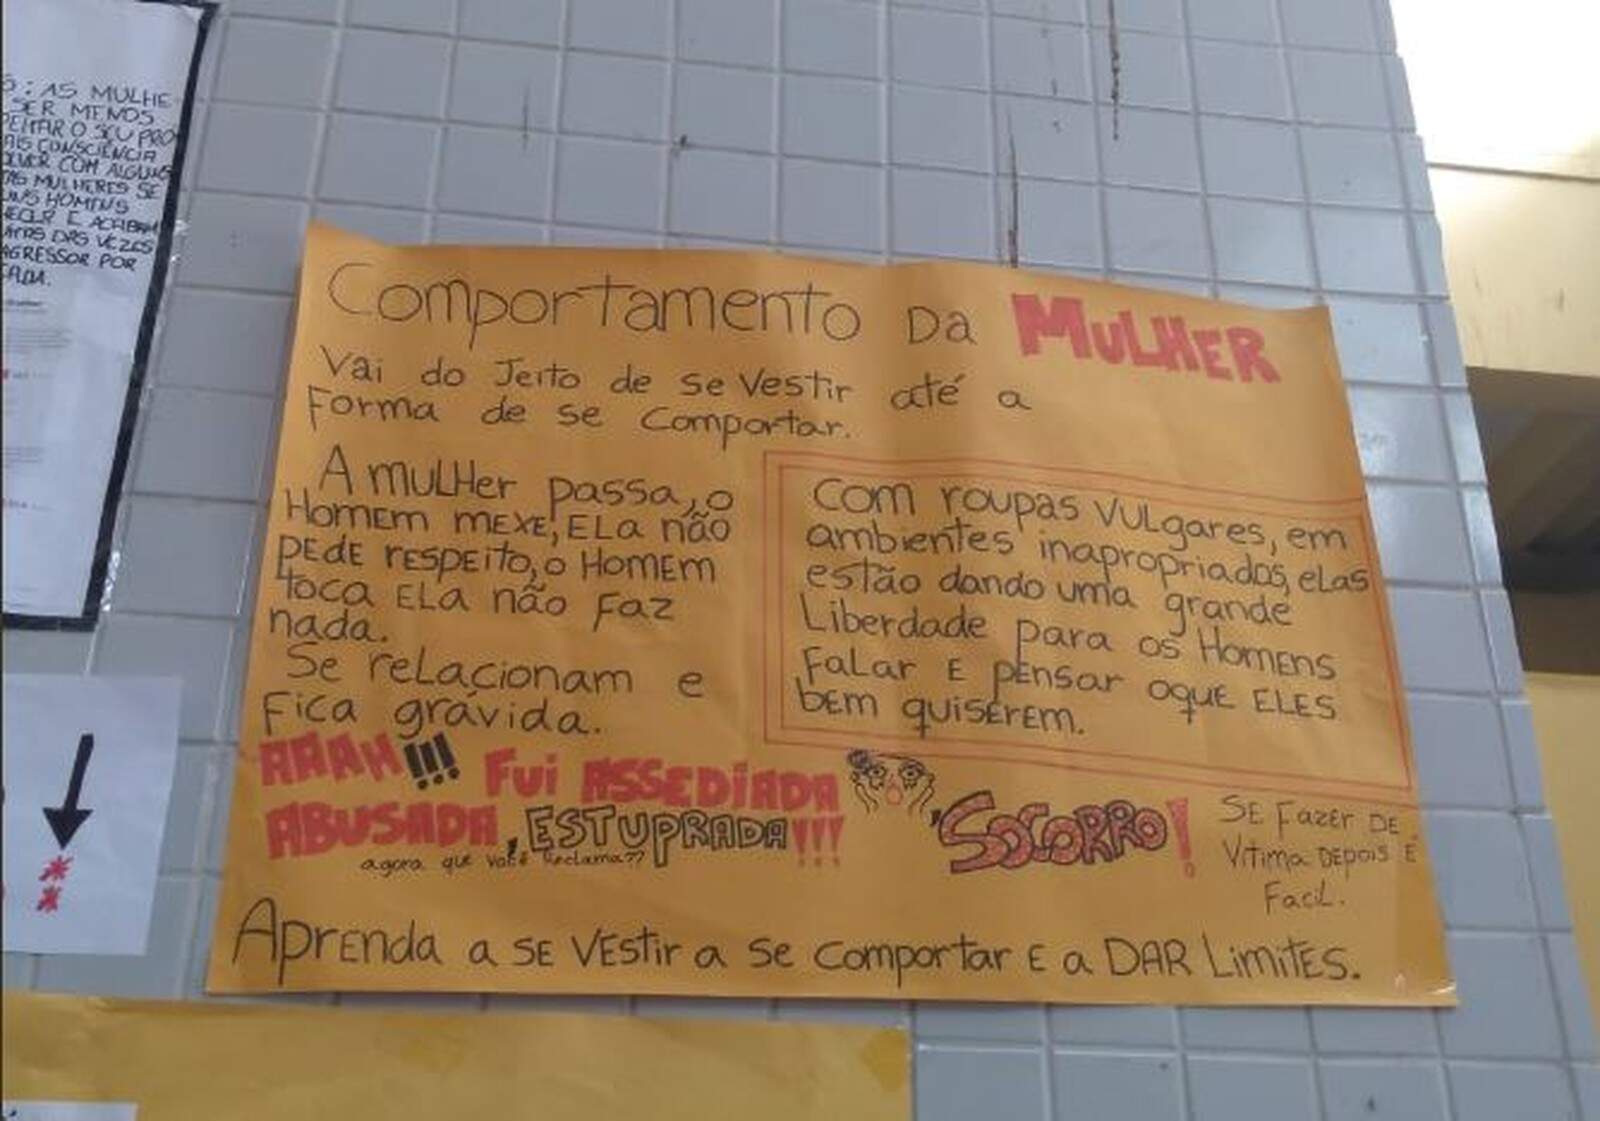 S: AS MULHE
SER MENOS
O SEU PRO
AIS CONSCIÊNCIA
OLVER COM ALGUNS
MULHERES SE
UNS HOMENS
E ACABAM
DAS VEZES
AGRESSOR POR
Comportamento Da MULHER
Vai do Jeito de se Vestir até a
Forma de se Comportar.
A MULHer passa, o
Homem mexe, ELa não
PEDE RESPEITO, o HOMEM
toca ELa não Faz
nada.
Se relacionam e
Fica grávida.
Com roupas VULgares, em
ambientes inapropriados, elas
estão dando uma grande
Liberdade para os Homens
FaLar E PENsar oque ELES
bem quiserem.
AAAH!!! Fui ASSEDIADA
ABUSADA, ESTUPRADA!!!
agora que você reclama??
, SOCORRO!
SE Fazer DE
Vítima DEPois É
Facil.
Aprenda a SE VEStir a Se comportar E a DAR LimitES.